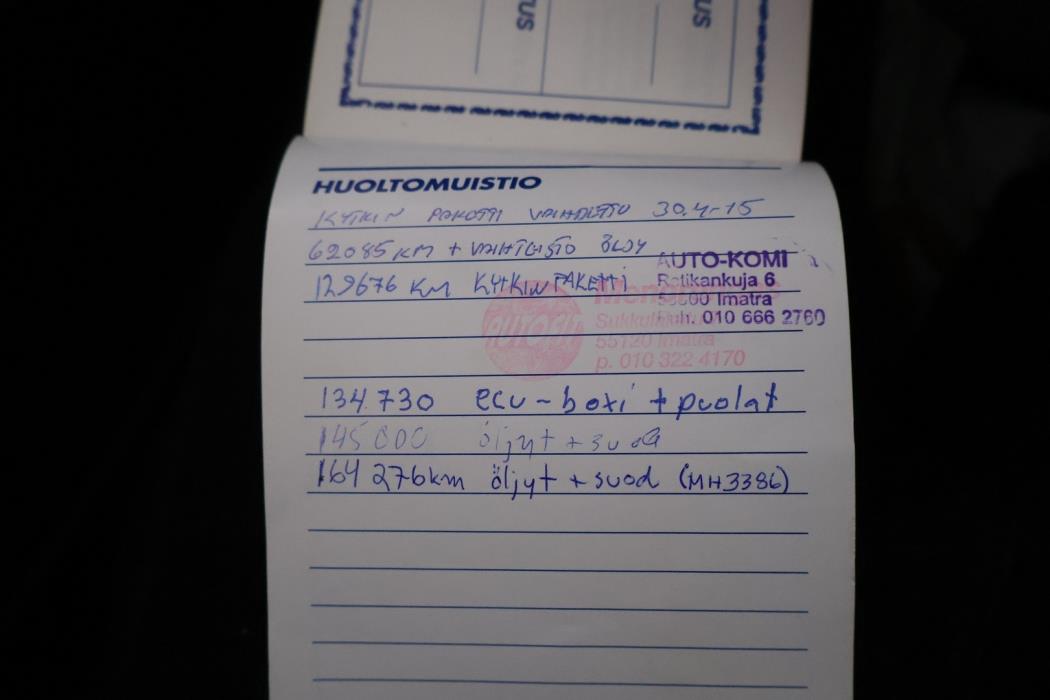 TUS
TUS
HUOLTOMUISTIO
KYTKIN PAKETTI VAIHDETTU 30.4-15
62085 KM + VAIHTEISTO ÖLJY
129676 KM KYTKINPAKETTI
AUTO-KOMI
Ratikankuja 6
Imatra
Puh. 010 666 2760
AUTOFIT
55120 Imatra
p. 010 322 4170
134.730 ecu-boxi + puolat
145000 öljyt + suod
164 276km öljyt + suod (MH3386)